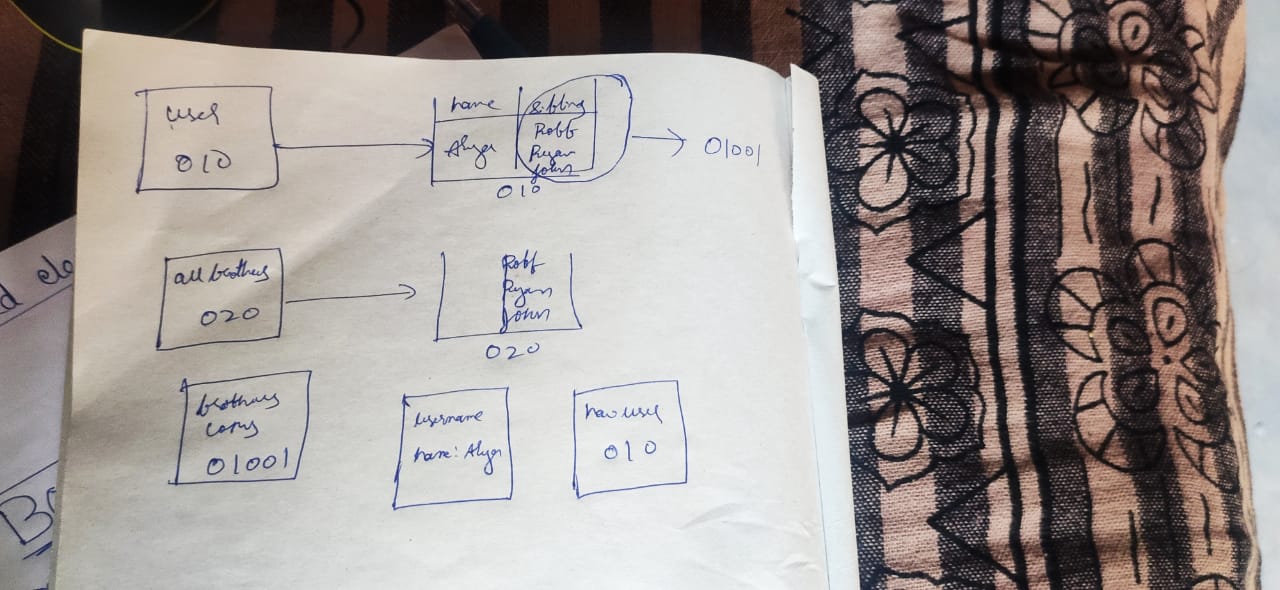 user
010
name
sibling
Robb
Ryan
John
010
01001
all brothers
020
Robb
Ryan
John
020
brothers
copy
01001
username
name:
new user
010
d
Bo